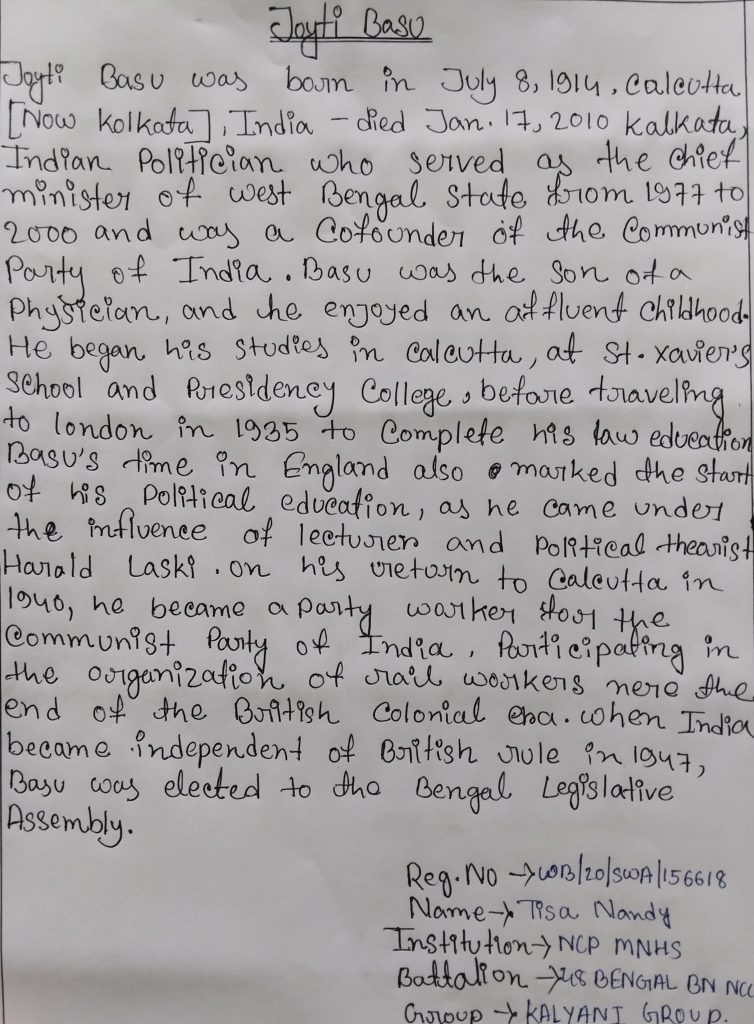 Joyti Basu
Joyti Basu was born in July 8, 1914, Calcutta
[Now Kolkata], India - died Jan. 17, 2010 Kalkata,
Indian Politician who served as the chief
minister of west Bengal State from 1977 to
2000 and was a Cofounder of the Communist
Party of India. Basu was the Son of a
Physician, and he enjoyed an affluent Childhood.
He began his Studies in Calcutta, at St. xavier's
School and Presidency College, before traveling
to london in 1935 to Complete his law education
Basu's time in England also marked the Start
of his Political education, as he came under
the influence of lecturer and Political thearist
Harald Laski. on his return to Calcutta in
1940, he became a party worker for the
Communist Party of India, Participating in
the organization of rail workers nere the
end of the British Colonial era. when India
became independent of British rule in 1947,
Basu was elected to the Bengal Legislative
Assembly.
Reg. No → WB/20/SWA/156618
Name → Tisa Nandy
Institution → NCP MNHS
Battalion → 48 BENGAL BN NCC
Group → KALYANI GROUP.